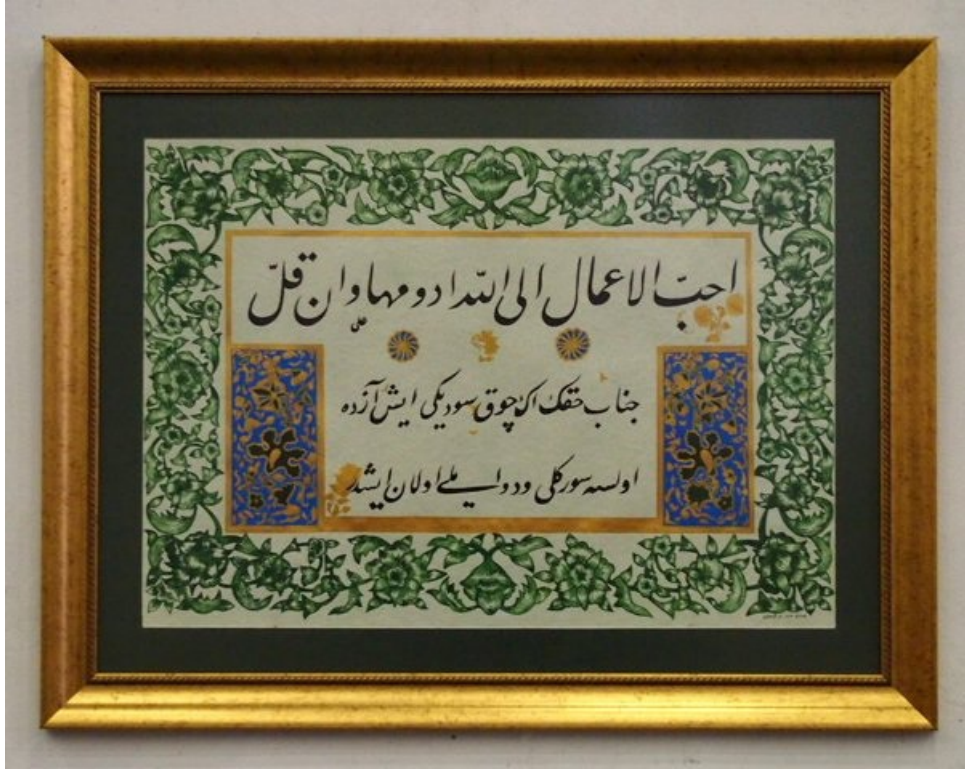 احبّ الاعمال الى الله ادومها وان قلّ
جناب حقك اڭ چوق سوديكى ايش آزده
اولسه سوركلى ودوايملى اولان ايشدر